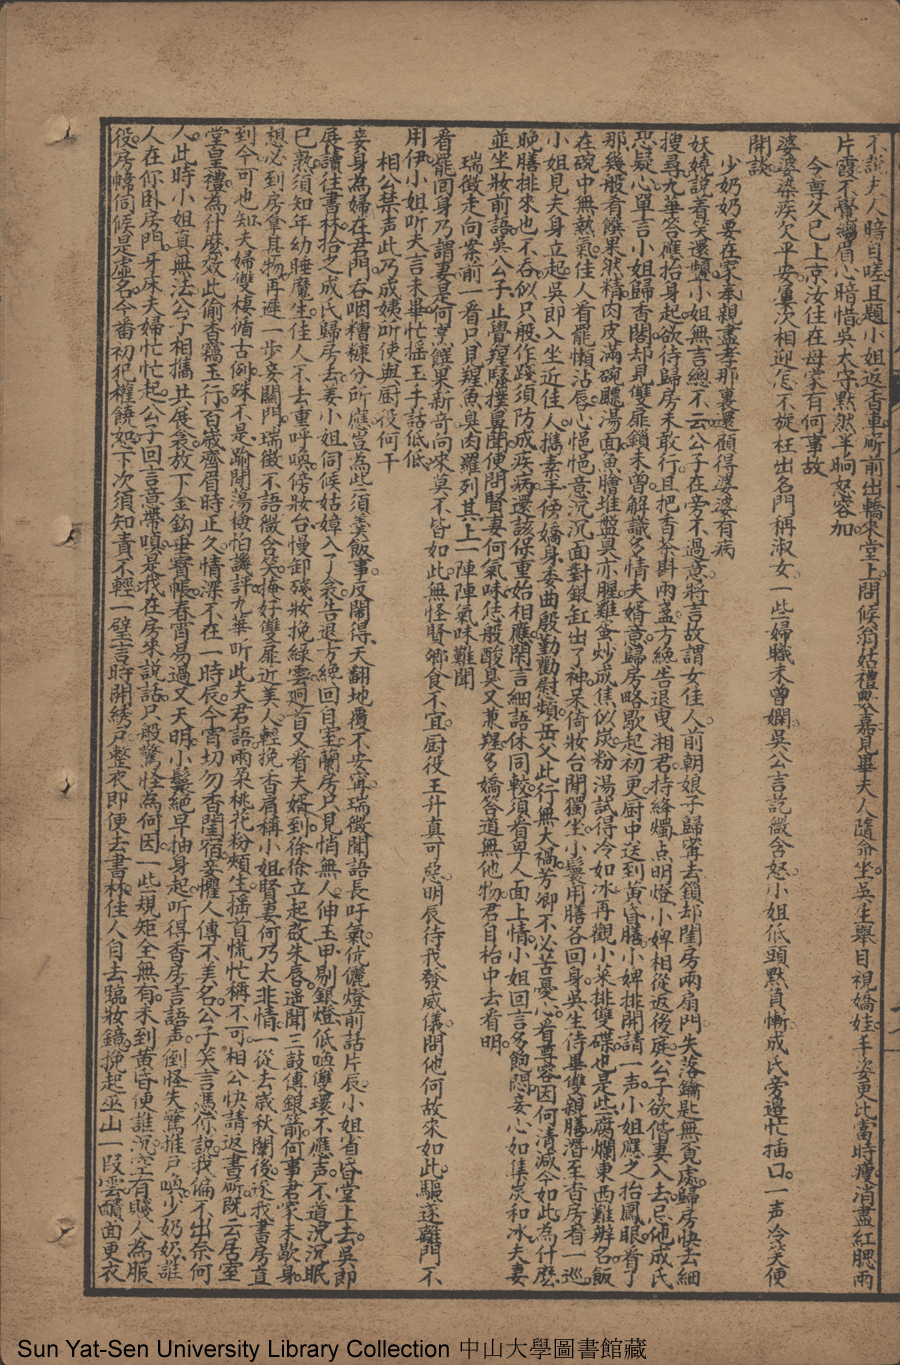 不說夫人暗自嗟且題小姐返香車所前出轎來堂上問候翁姑禮數嘉見畢夫人隨命坐吳生舉目視嬌娃丰姿更比當時瘦消盡紅腮兩
片霞不覺濃眉心暗惜吳太守默然半晌怒容加
今尊久已上京汝住在母家有何事故
婆婆染疾欠平安屢次相迎怎不旋枉出名門稱淑女一些婦職未曾嫻吳公言訖微含怒小姐低頭默負慚成氏旁邊忙插口一声冷笑便
開談
少奶奶要在家奉親盡孝那裏還顧得婆婆有病
妖嬈說着笑還顰小姐無言總不云公子在旁不過意將言故謂女佳人前朝娘子歸寧去鎖却閨房兩扇門失落鑰匙無覓處歸房快去細
搜尋九華答應抬身起欲待歸房未敢行且把香茶斟兩盞方絕告退曳湘君持絳燭点明燈小婢相從返後庭公子欲偕妻入去忌他成氏
恐疑心單言小姐歸香閣却見雙扉鎖未曾解識多情夫婿意歸房略歇起初更厨中送到黃昏膳小婢排開請一声小姐應之抬鳳眼看了
那幾般肴饌果然精肉皮滿碗聽湯面魚膾堆盤臭亦腥雞蛋炒成焦似炭粉湯試得冷如冰再觀小菜排雙碟也是些腐爛東西難辨名飯
在碗中無熱氣佳人看罷懶沾唇心悒悒意沉沉面對銀缸出了神呆倚妝台開獨坐小鬟用膳各回身吳生侍畢雙親膳潛至香房看一巡
小姐見夫身立起吳郎入坐近佳人携素手傍嬌身委曲殷勤勸慰頻岳父此行無大禍芳卿不必苦憂心看尊容因何清減今如此為什麽
晚膳排來也不吞似只般作踐須防成疾病還該保重始相應閑言細語休同較須看卑人面上情小姐回言多飽隱妾心如集炭和冰夫妻
並坐妝前語吳公子止覺羶腥撲鼻聞便問賢妻何氣味恁般酸臭又兼羶多嬌答道無他物君自枱中去看明
瑞徵走向案前一看只見羶魚臭肉羅列其上一陣陣氣味難聞
看罷回身乃謂妻是何烹饌果新奇向來莫不皆如此無怪賢卿食不宜厨役王升真可惡明辰待我發威儀問他何故來如此驅逐離門不
用伊小姐听夫言未畢忙搖玉手話低低
相公禁声此乃成姨所使與厨役何干
妾身為婦在君門吞咽糟糠分所應豈為些須羹飯事反鬧得天翻地覆不安寧瑞徵聞語長吁氣伉儷燈前話片辰小姐省昏堂上去吳郎
展讀往書林抬之成氏歸房去姜小姐伺候姑嫜入了衾告退方絕回自室蘭房只見悄無人伸玉甲剔銀燈低喚雙環不應声不道沉沉眠
已熟須知年幼睡魔生佳人不去重呼喚傍妝台慢卸殘妝挽綠雲廻首又看夫婿到徐徐立起啟朱唇遥聞三鼓傳銀箭何事君家未歇身
想必到房拿耳物再遲一步妾關門瑞徵不語微含笑掩好雙扉近美人輕挽香肩稱小姐賢妻何乃太非情一從去歲秋闈後逐我書房直
到今可也知夫婦雙棲循古例殊不是踰閑蕩檢怕譏評九華听此夫君語兩朵桃花粉頰生摇首慌忙稱不可相公快請返書所既云居室
堂皇禮為什麽效此偷香竊玉行百歲齊眉時正久情深不在一時辰今宵切勿香閨宿妾懼人傳不美名公子笑言憑你說我偏不出奈何
人此時小姐真無法公子相携共展衾放下金鈎垂寶帳春宵易過又天明小鬟絕早抽身起听得香房言語声倒怪失驚推戶喚少奶奶誰
人在你臥房門牙床夫婦忙忙起公子回言意帶嗔是我在房來說話只般驚怪為何因一些規矩全無有未到黃昏便誰沉空有賤人為服
役房幃伺候是虛名今番初犯權饒恕下次須知責不輕一壁言時開綉戶整衣即便去書林佳人自去臨妝鏡挽起巫山一段雲醩面更衣
Sun Yat-Sen University Library Collection 中山大學圖書館藏